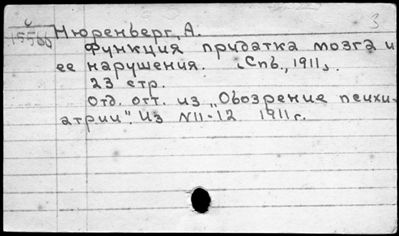 3
15566
Нюренберг, А.
Функция придатка мозга и
ее нарушения. [Спб., 1911].
23 стр.
Отд. отт. из „Обозрение психи-
атрии". Из N11-12 1911 г.